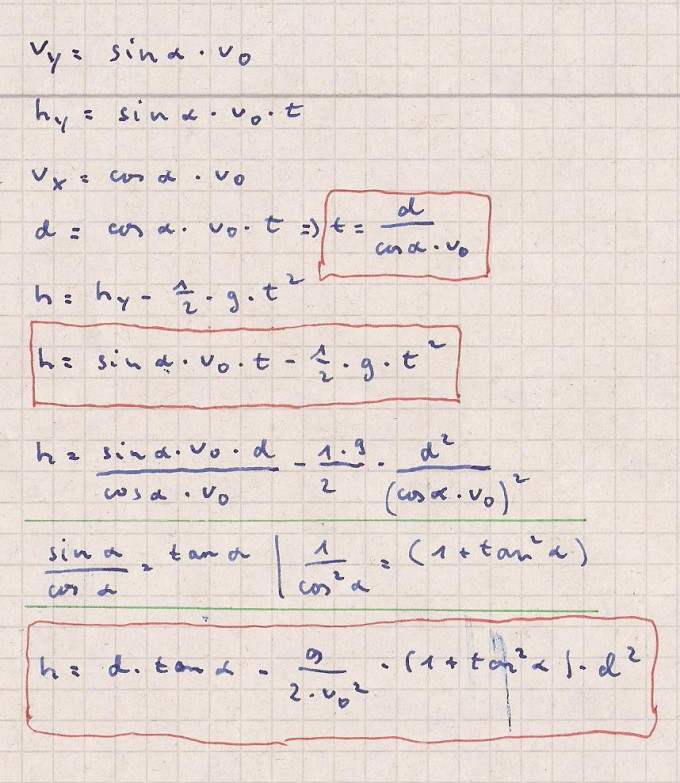 v_y = sin α · v_0
h_y = sin α · v_0 · t
v_x = cos α · v_0
d = cos α · v_0 · t ⇒ t = d / (cos α · v_0)
h = h_y - 1/2 · g · t²
h = sin α · v_0 · t - 1/2 · g · t²
h = (sin α · v_0 · d) / (cos α · v_0) - (1 · g)/2 · d² / (cos α · v_0)²
sin α / cos α = tan α | 1 / cos² α = (1 + tan² α)
h = d · tan α - g / (2 · v_0²) · (1 + tan² α) · d²